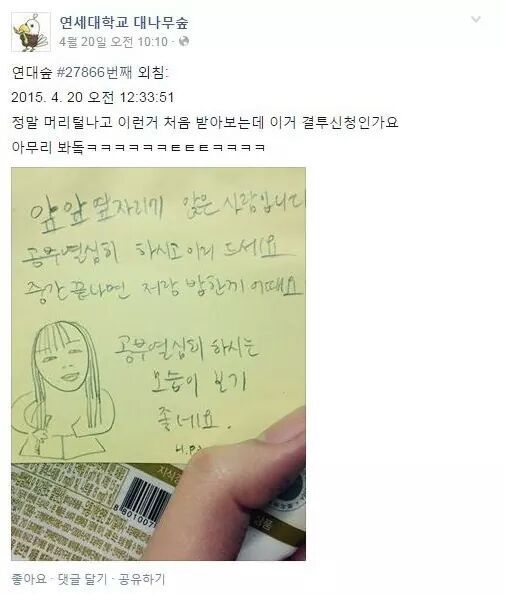 연세대학교 대나무숲
4월 20일 오전 10:10 ·
연대숲 #27866번째 외침:
2015. 4. 20 오전 12:33:51
정말 머리털나고 이런거 처음 받아보는데 이거 결투신청인가요
아무리 봐돜ㅋㅋㅋㅋㅋㅋㅌㅌㅌㅋㅋㅋㅋ
앞앞 옆자리기 앉은 사람입니다
공부열심히 하시고 이거 드세요
중간 끝나면 저랑 밥한끼 어때요
공부열심히 하시는
모습이 보기
좋네요.
좋아요 · 댓글 달기 · 공유하기